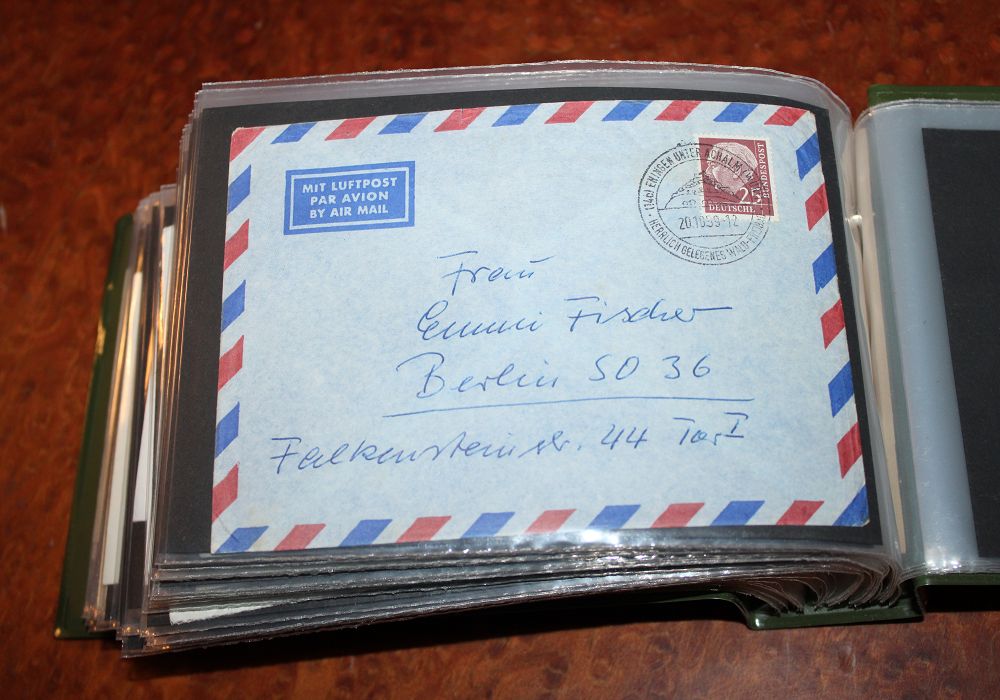 MIT LUFTPOST
PAR AVION
BY AIR MAIL
(14b) ENINGEN UNTER ACHALM
20.10.59-12
HERRLICH GELEGENES WALD-
25
DEUTSCHE
BUNDESPOST
Frau
Emmi Fischer
Berlin SO 36
Falkensteinstr. 44 Tor I